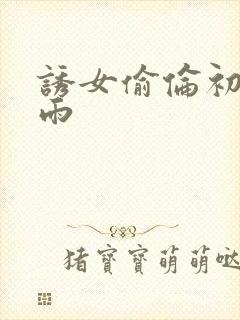 誘女偷倫初
雨
猪寶寶萌萌哒